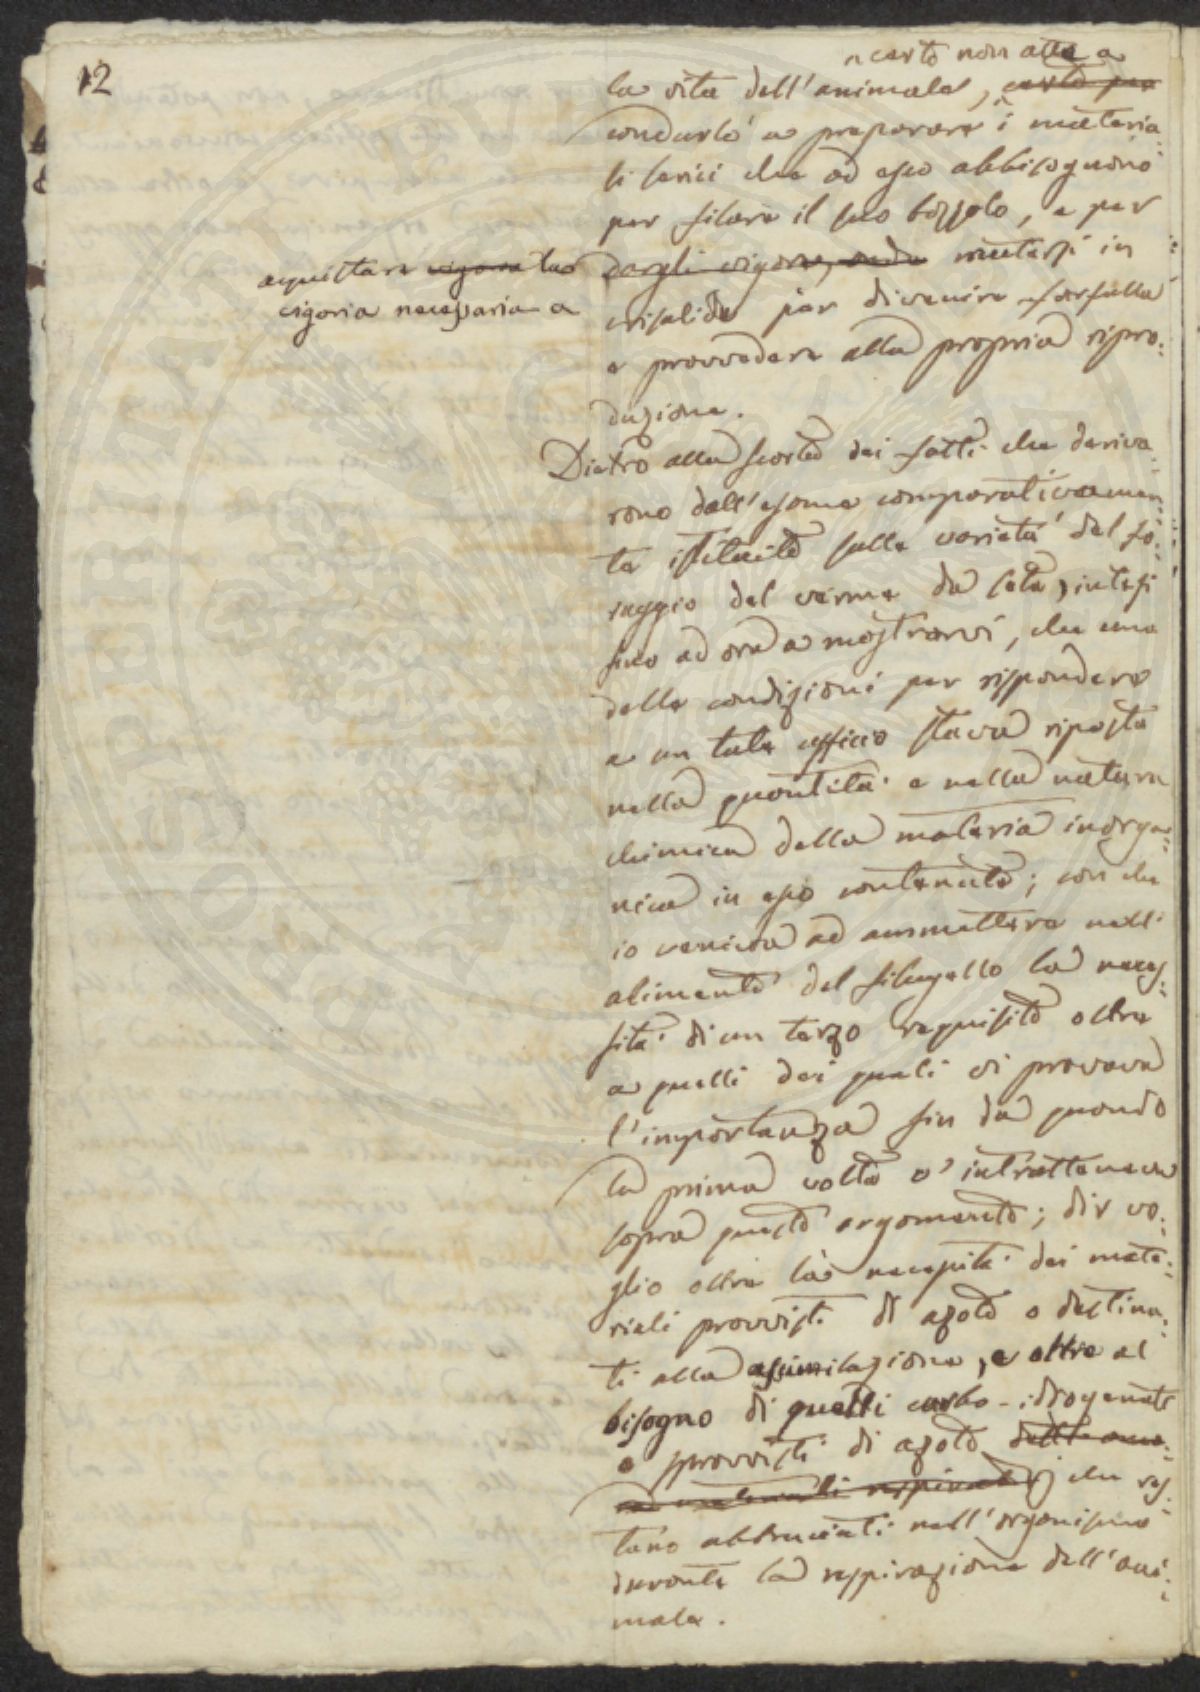 12
e certo non atta a
la vita dell'animale, certo per
condurlo a preparare i materia=
li serici che ad esso abbisognano
per filare il suo bozzolo, e per
acquistare vigoria la
vigoria necessaria a
dargli vigore, onde mutarsi in
crisalide per divenire farfalla
e provvedere alla propria ripro=
duzione.
Dietro alla scorta dei fatti che deriva=
rono dall'esame comparativamen=
te istituito sulle varietà del fo=
raggio del verme da seta, intesi
sino ad ora a mostrarvi, che una
delle condizioni per rispondere
a un tale ufficio stava riposta
nella quantità e nella natura
chimica della materia inorga=
nica in esso contenuta; con che
io veniva ad ammettere nell'
alimento del filugello la neces=
sità di un terzo requisito oltre
a quelli dei quali vi provava
l'importanza fin da quando
la prima volta v'intratteneva
sopra questo argomento; dir vo=
glio oltre la necessità dei mate=
riali provvisti di azoto e destina=
ti alla assimilazione, e oltre al
bisogno di quelli carbo-idrogenati
e sprovvisti di azoto
che res=
tano abbruciati nell'organismo
durante la respirazione dell'ani=
male.